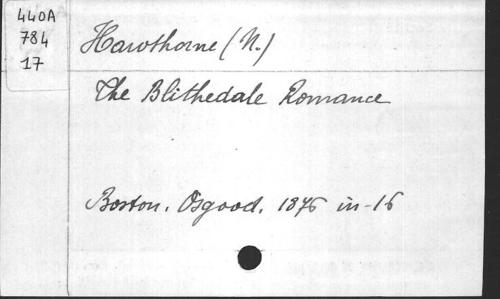 440A
784
17
Hawthorne (N.)
The Blithedale Romance
Boston. Osgood. 1876 in-16